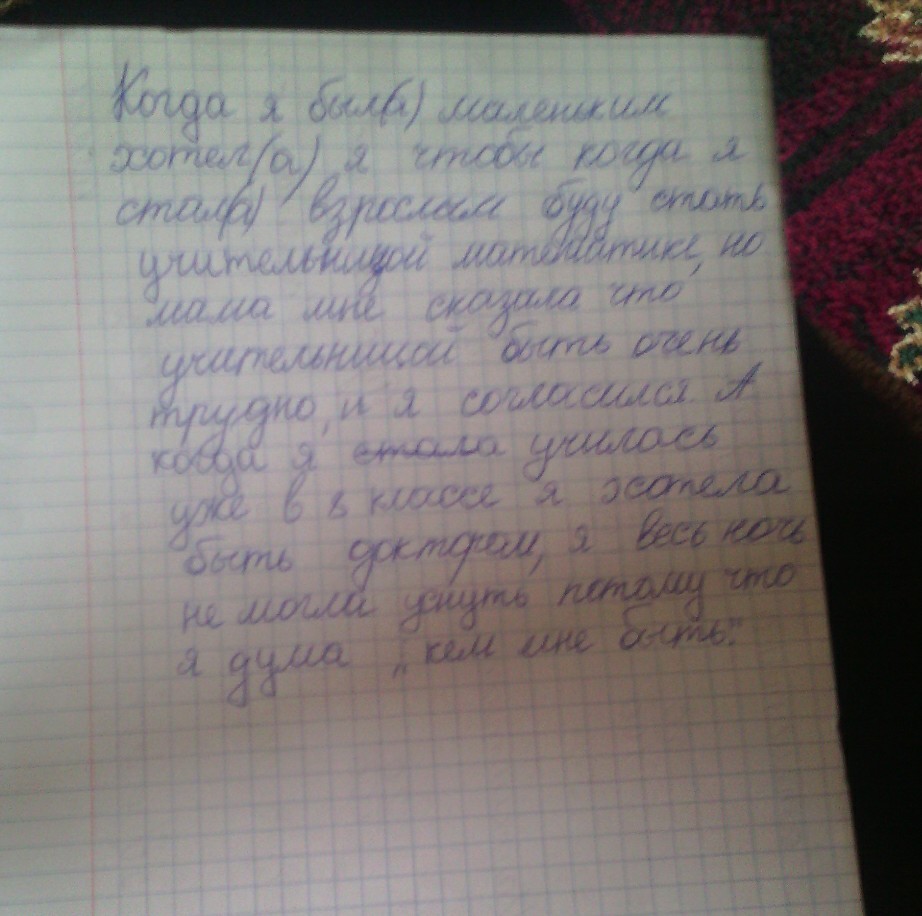 Когда я был(а) маленьким
хотел(а) я чтобы когда я
стал(а) взрослым буду стать
учительницой математике, но
мама мне сказала что
учительницой быть очень
трудно, и я согласился. А
когда я стала училась
уже в 8 классе я хотела
быть доктором, я весь ночь
не могла уснуть потому что
я дума „кем мне быть."